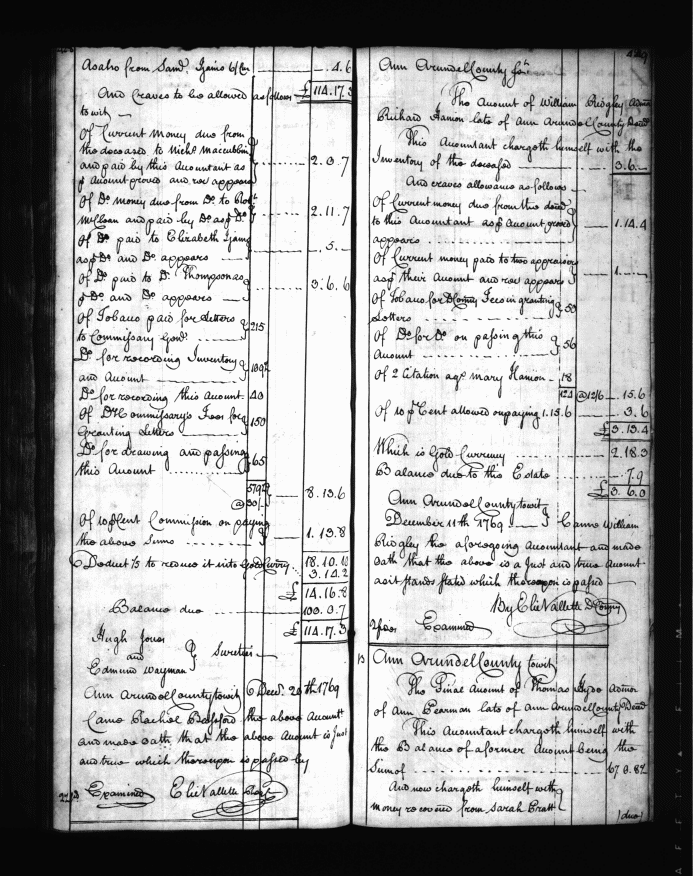 As also from Saml. Gains 4. 6
And Craves to be allowed as follows £ 114.17.3
to wit —
Of Current money due from
the deceased to Nichs. Maccubbin
and paid by this Accountant as 2. 0. 7
p Account proved and rect appears
Of Do. money due from Do. to Robt.
McClean and paid by Do. as p Do. 2. 11. 7
Of Do. paid to Elizabeth
as p Do. and Do. appears . 5. —
Of Do. paid to Dr. Thompson as 3. 6. 6
p Do. and Do. appears
Of Tobacco paid for Letters 215
to Commissary Genl.
Do. for recording Inventory
and Account 109½
Do for recording this Account 40
Of Dy. Commissary's Fees for 150
Granting Letters
Do. for drawing and passing 65
this Account
579½ 8. 13. 6
@ 30/
Of 10 p Cent Commission on paying
the above Sums 1. 13. 8
Deduct 1/5 to reduce it into Gold Curry. 18. 10. 10
3. 14. 2
£ 14. 16. 8
Balance due 100. 0. 7
£ 114. 17. 3
Hugh Jones
and } Sureties
Edmund Wayman
Ann Arundel County towit Decr. 20th 1769
Came Rachel the above Accountt.
and made oath that the above Account is Just
and true which thereupon is passed by
Examined Elie Vallette

Ann Arundel County Sst.
The Amount of William Ridgley Admr.
Richard Hamon late of Ann Arundel County Decd.
This Accountant chargeth himself with the
Inventory of the deceased 3. 6. —
And craves allowance as follows —
Of Current money due from the decd.
to this Accountant as p Account proved 1. 14. 4
appears
Of Current money paid to two appraisers
as p their Account and rect appears 1. —
Of Tobacco for D Comy Fees in granting 50
Letters
Of Do. for Do. on passing this 56
Account
Of 2 Citation agt. Mary Hamon 18
124 @ 12/6 15. 6
Of 10 p Cent allowed on paying 1. 15. 6 3. 6
£ 3. 13. 4
Which is Gold Currency 2. 18. 3
Balance due to this Estate 7. 9
£ 3. 6. 0
Ann Arundel County towit
December 11th 1769 Came William
Ridgley the aforegoing Accountant and made
Oath that the above is a Just and true Account
as it stands stated which thereupon is passed
By Elie Vallette D Comy
Examined
13 Ann Arundel County towit
The Final Account of Thomas Admor
of Ann Pearman late of Ann Arundel County Decd
This Accountant chargeth himself with
the Balance of a former Account being the
Sum of 67 0. 8½
And now chargeth himself with
money recovered from Sarah Pratt
(due)